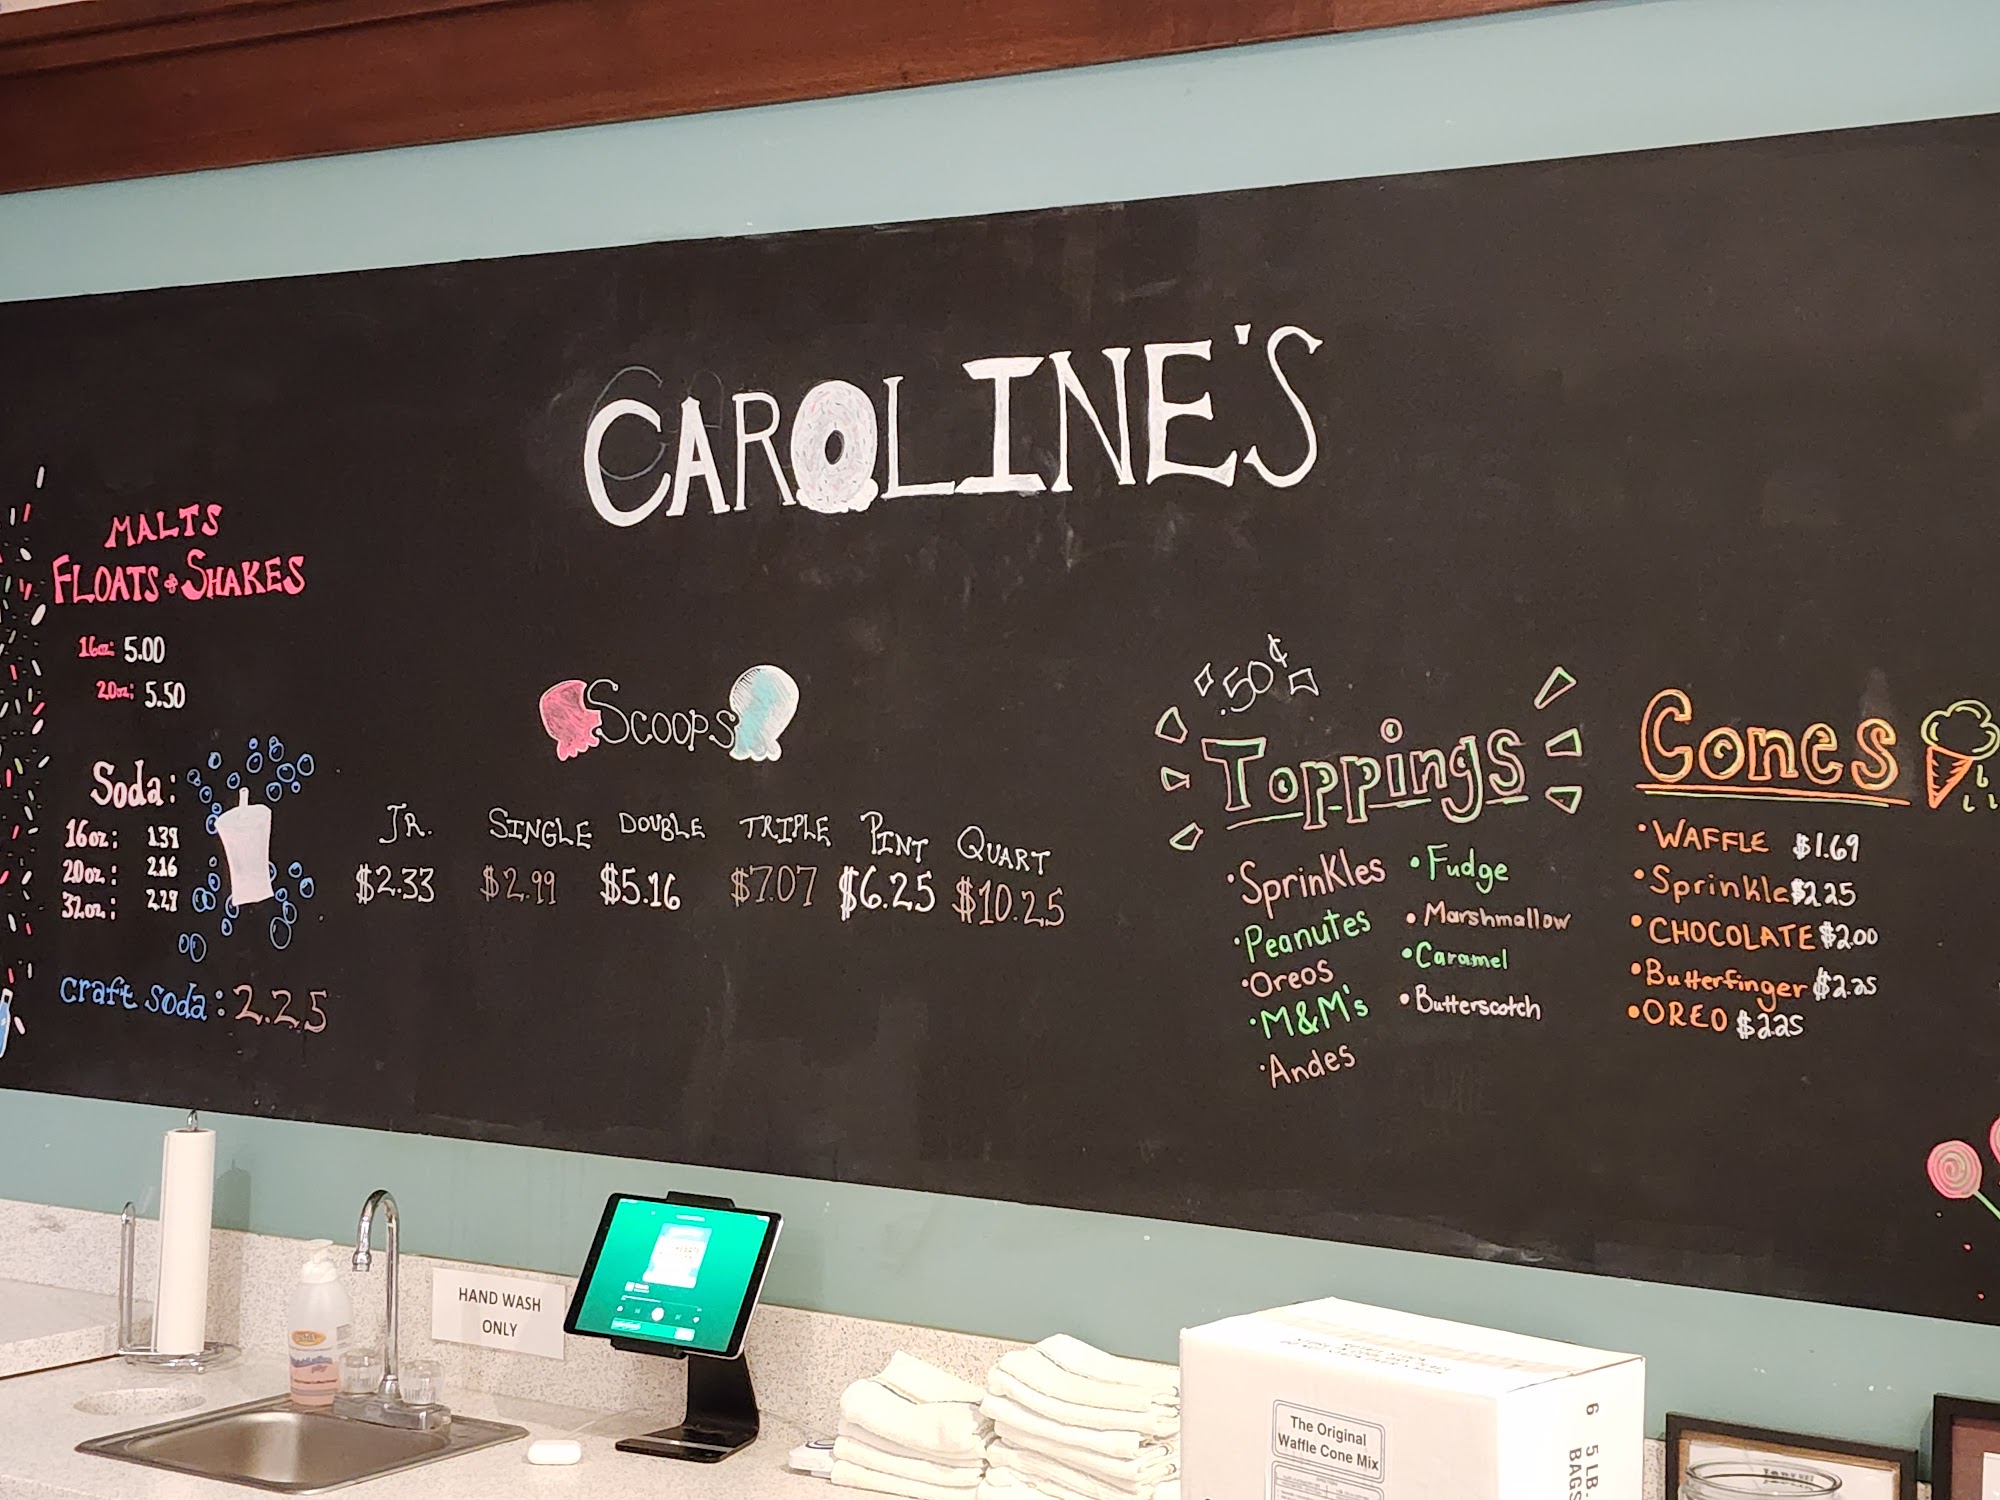 CAROLINE'S
MALTS
FLOATS & SHAKES
16oz: 5.00
20oz: 5.50
Soda:
16oz: 1.39
20oz: 2.16
32oz: 2.28
craft soda: 2.25
Scoops
JR. SINGLE DOUBLE TRIPLE PINT QUART
$2.33 $2.99 $5.16 $7.07 $6.25 $10.25
.50¢
Toppings
·Sprinkles
·Peanutes
·Oreos
·M&M's
·Andes
•Fudge
•Marshmallow
•Caramel
•Butterscotch
Cones
•WAFFLE $1.69
•Sprinkle $2.25
•CHOCOLATE $2.00
•Butterfinger $2.25
•OREO $2.25
HAND WASH
ONLY
The Original
Waffle Cone Mix
6 5 LB.
BAGS